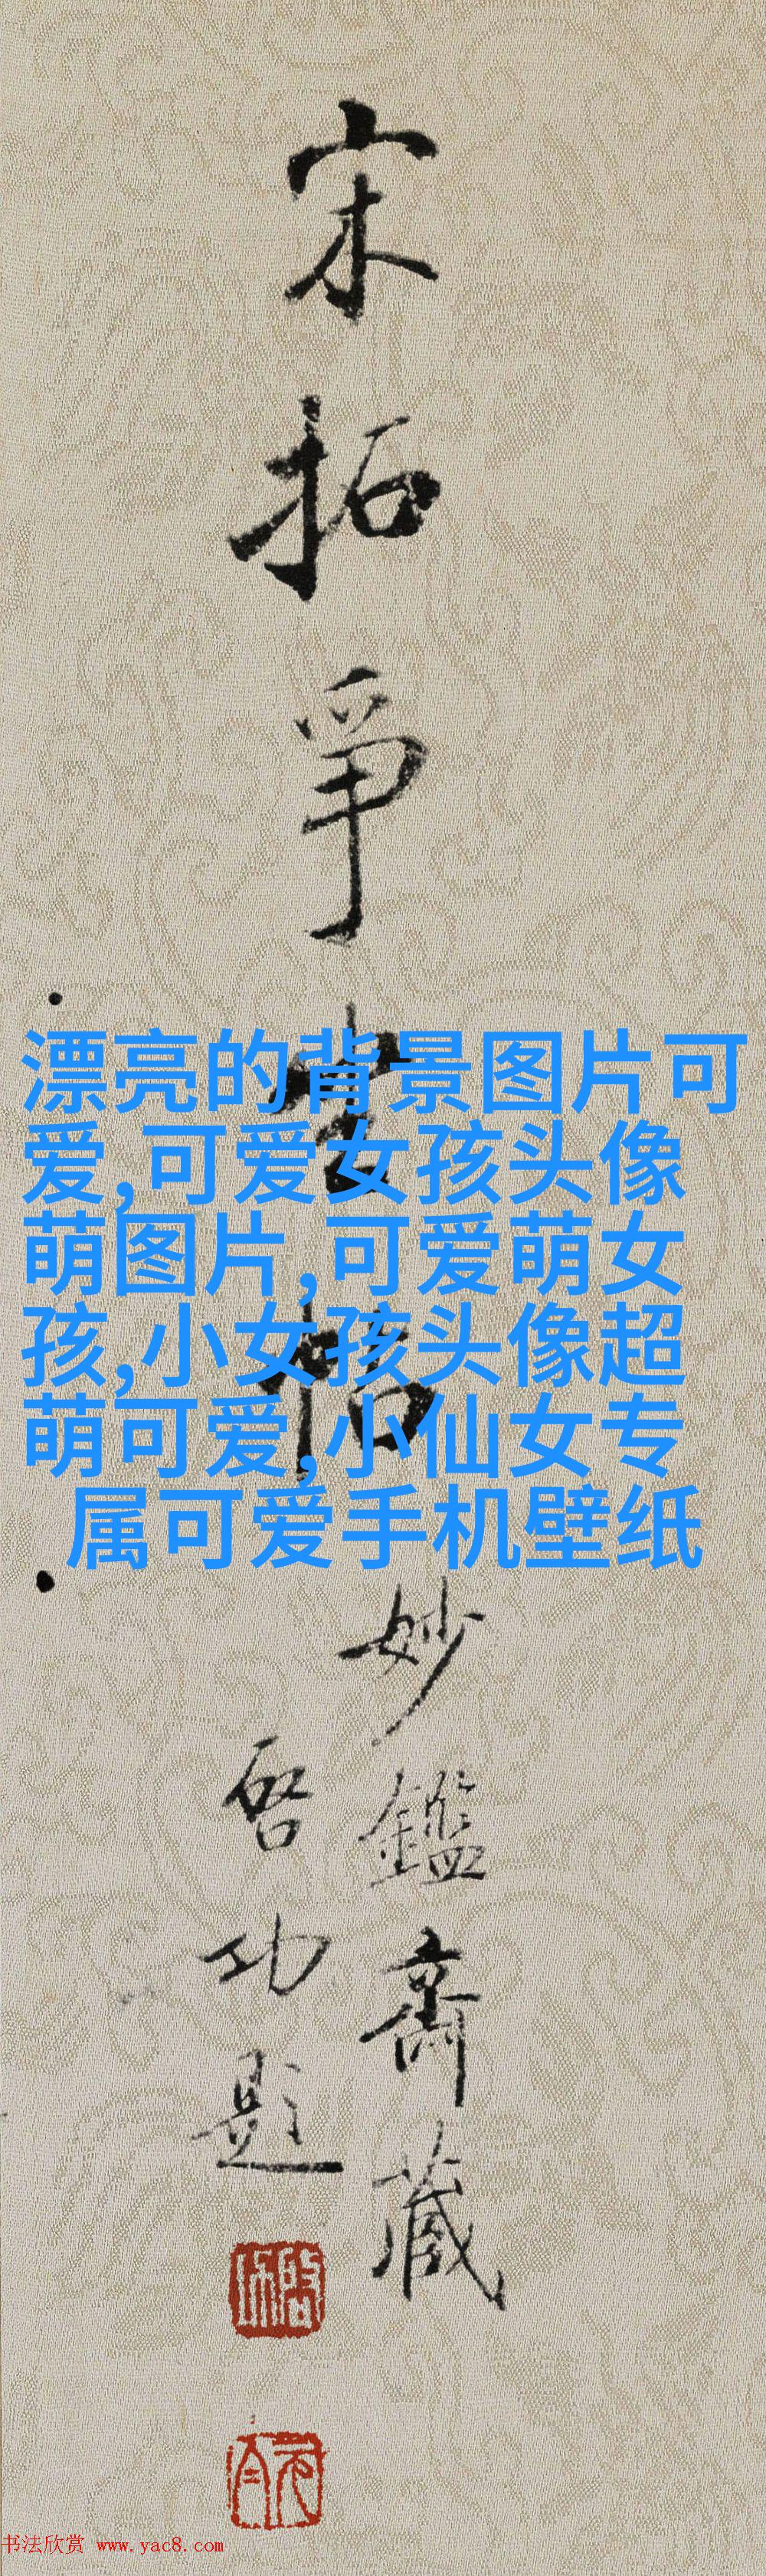 宋拓争坐帖
妙鑑斋藏
启功题
漂亮的背景图片可
爱,可爱女孩头像
萌图片,可爱萌女
孩,小女孩头像超
萌可爱,小仙女专
属可爱手机壁纸
书法欣赏 www.yac8.com